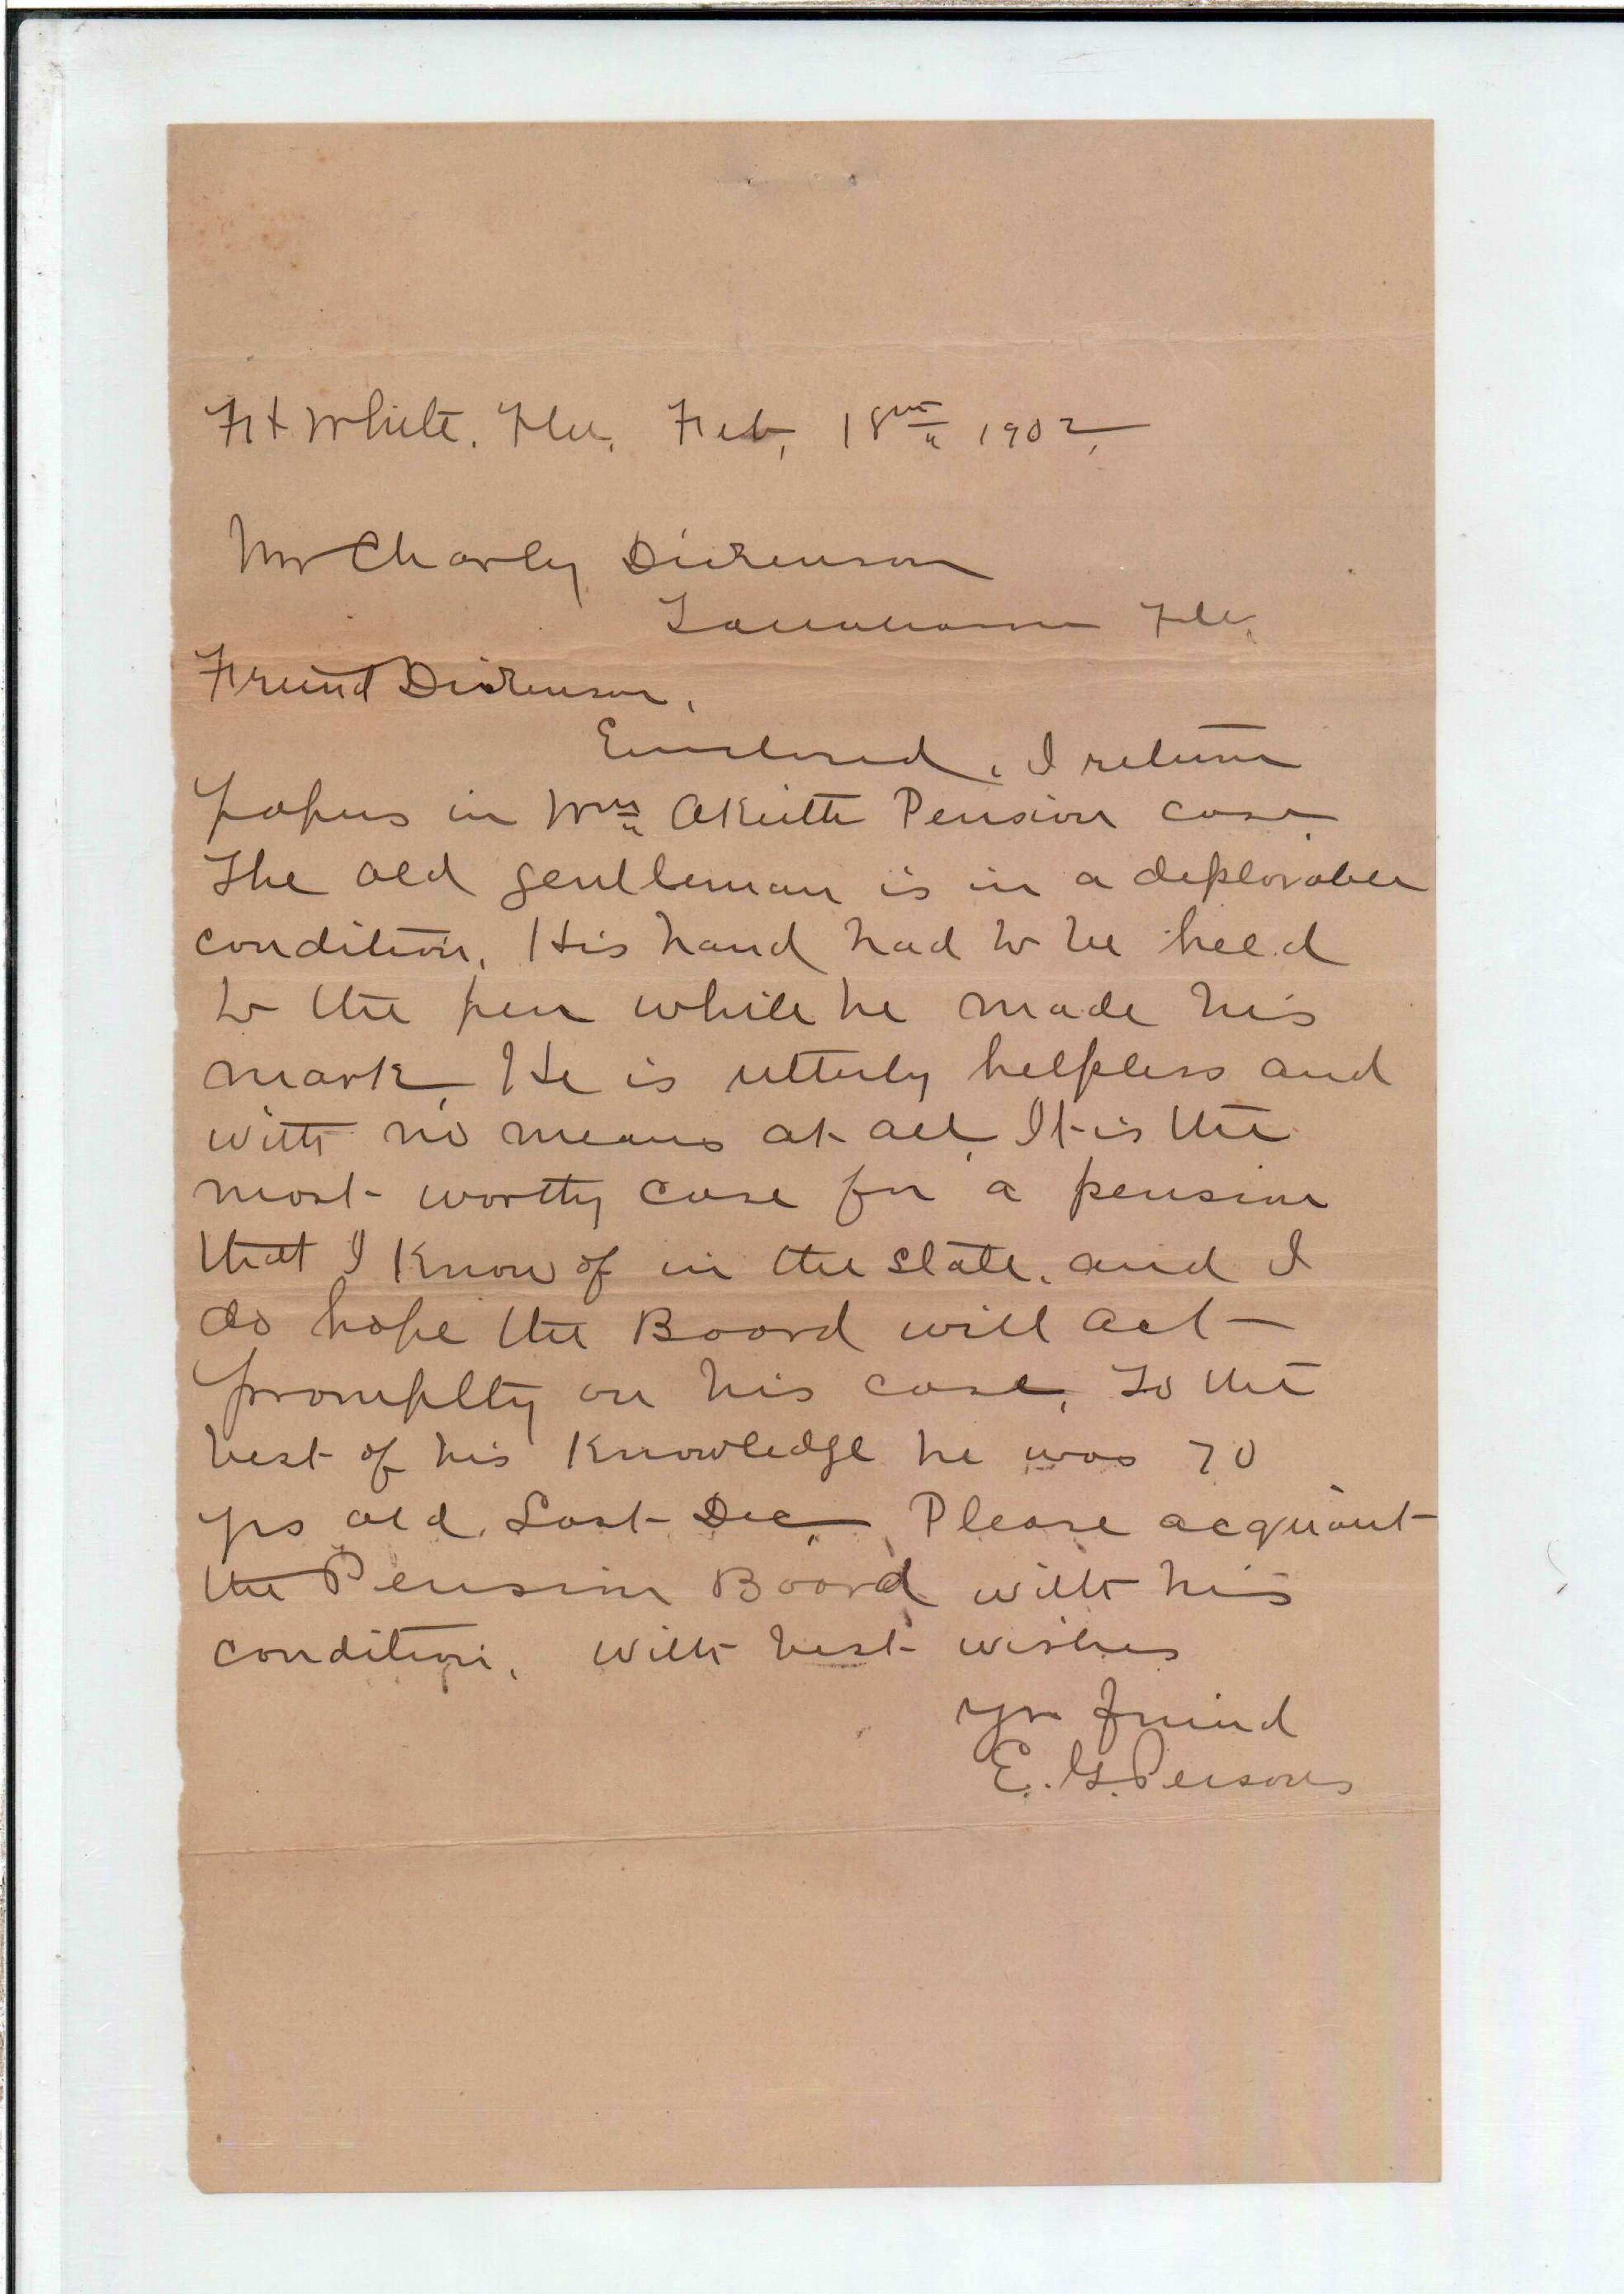 Ft White. Fla. Feb, 18th 1902,
Mr Charly Dickenson
Tallahassee Fla.
Friend Dickenson,
Enclosed, I return
papers in Wm A Keith Pension case.
The old gentleman is in a deplorable
condition. His hand had to be held
to the pen while he made his
mark. He is utterly helpless and
with no means at all. It is the
most worthy case for a pension
that I know of in the state. and I
do hope the Board will act
promptly on his case. To the
best of his Knowledge he was 70
yrs old, Last Dec. Please acquaint
the Pension Board with his
condition. With best wishes
Yr friend
E. G. Persons